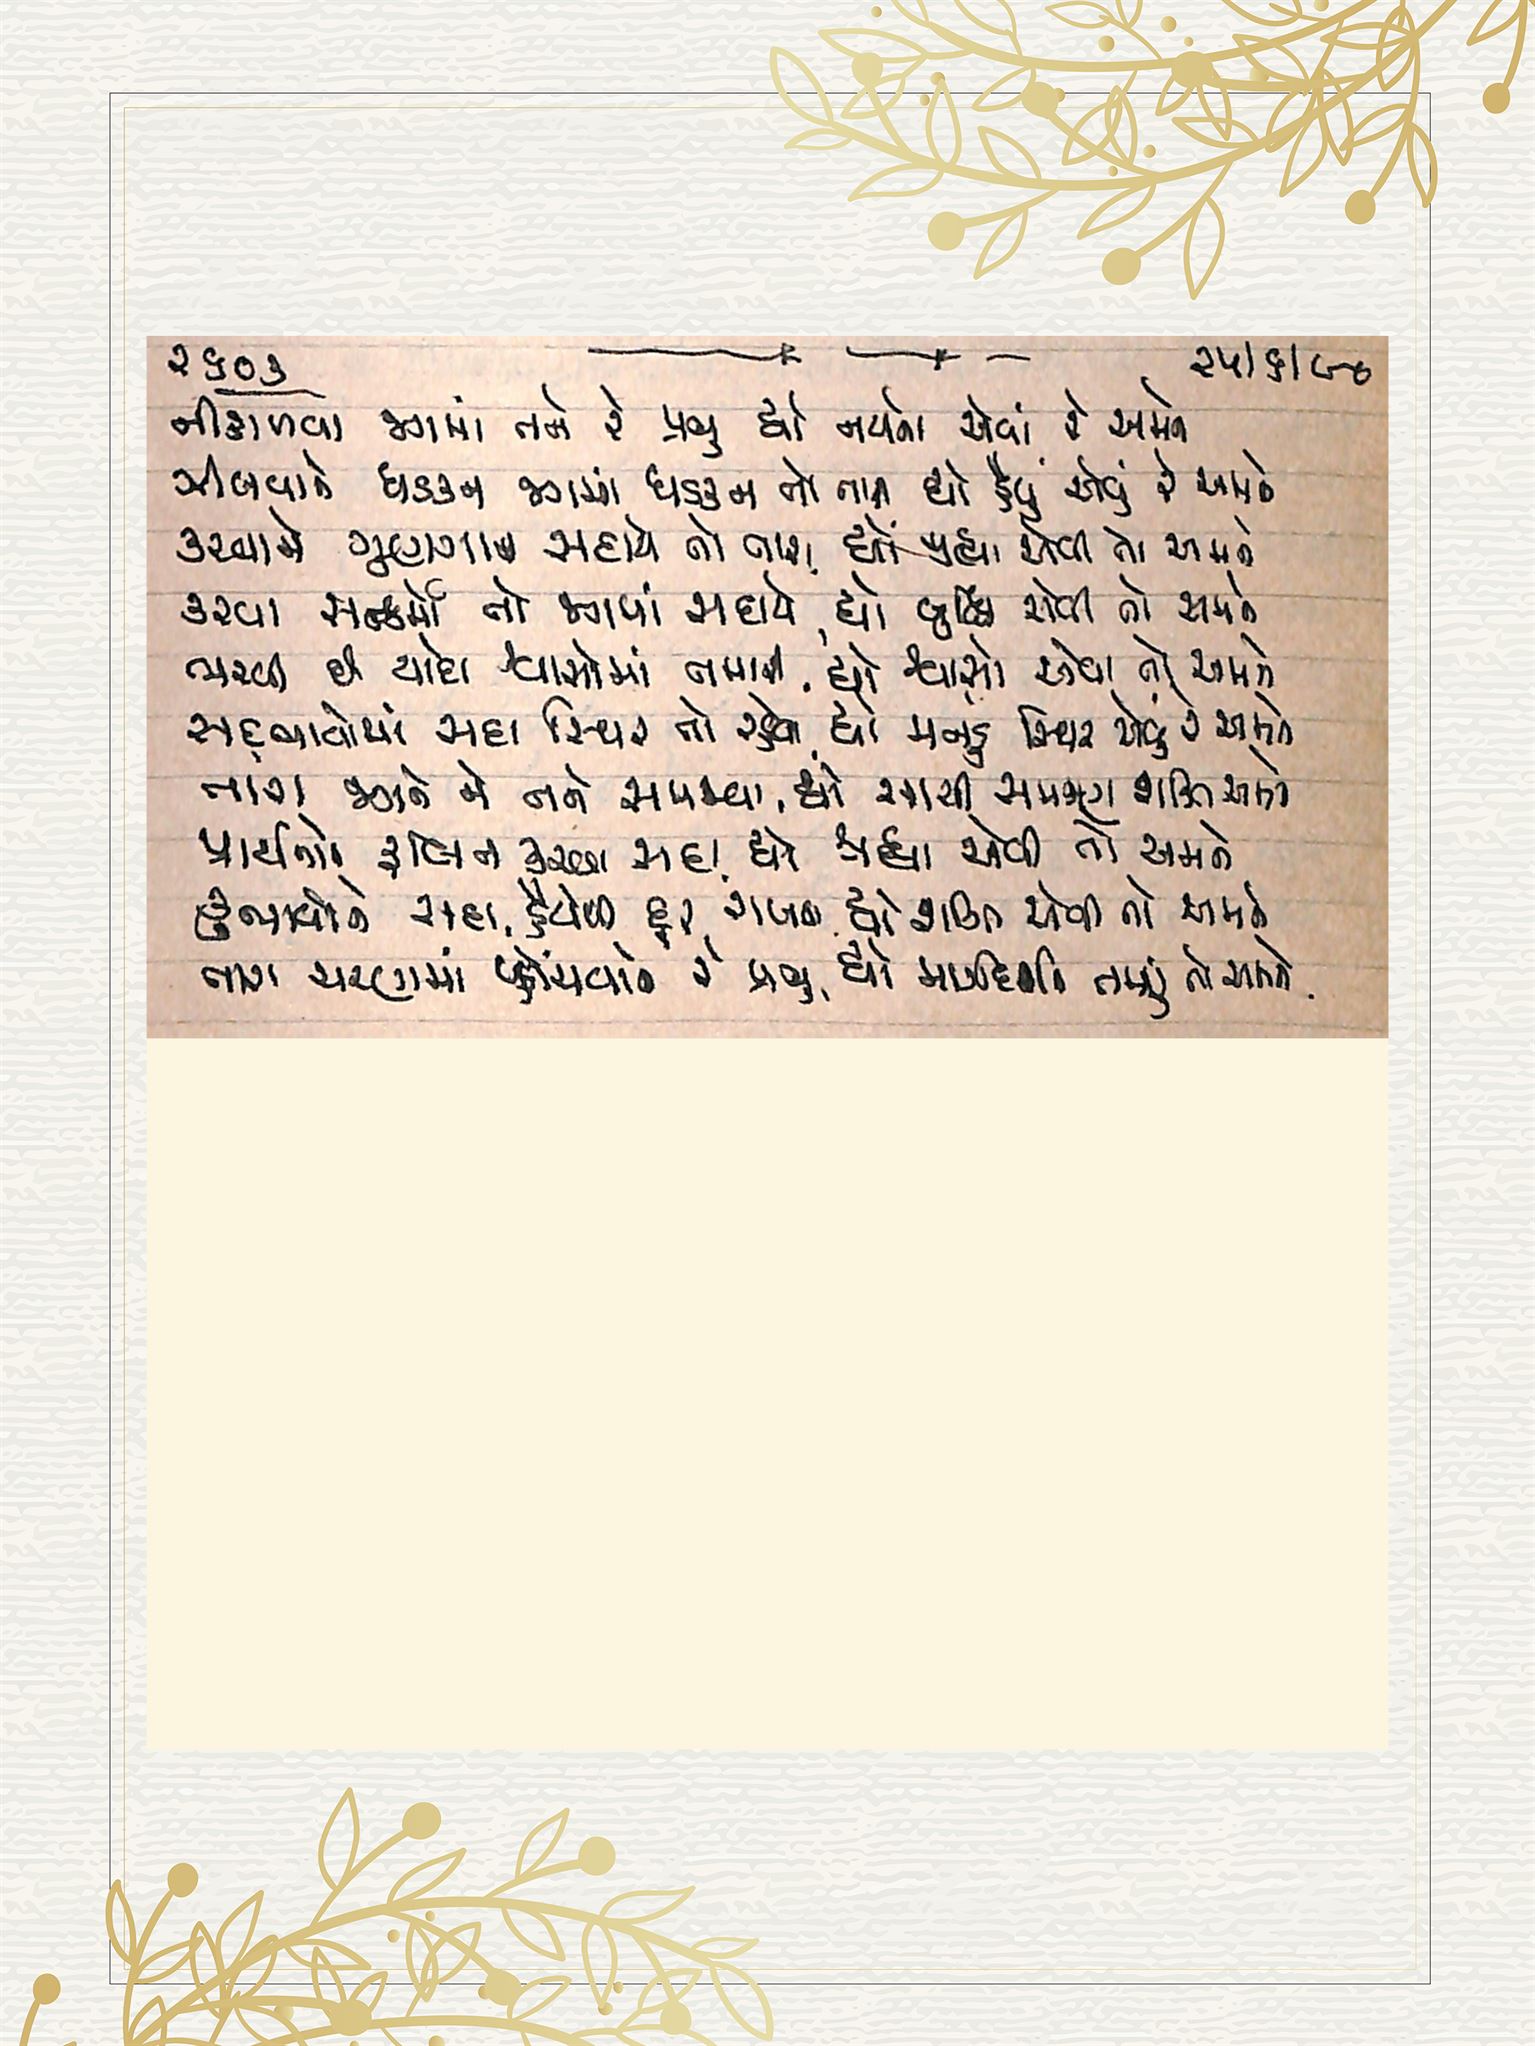 ૨૬૦૩ ૨૫/૬/૯૦
નીહાળવા જગમાં તને રે પ્રભુ દ્યો નયનો એવાં રે અમને
ઝીલવાને ધડકન જગમાં ધડકન તો તારા દ્યો હૈયું એવું રે અમને
કરવાને ગુણગાન સદાયે તો તારા, દ્યો જીહ્વા એવી તો અમને
કરવા સત્કર્મો તો જગમાં સદાયે, દ્યો બુદ્ધિ એવી તો અમને
ભરવી છે યાદો શ્વાસોમાં તમારી, દ્યો શ્વાસો એવા તો અમને
સદ્ભાવોમાં સદા સ્થિર તો રહેવા, દ્યો મનડું સ્થિર એવું રે અમને
તારા જગને ને તને સમજવા, દ્યો સાચી સમજણ શક્તિ અમને
પ્રાર્થનાને કરવા સદા, દ્યો શ્રદ્ધા એવી તો અમને
કુભાવોને સદા, હૈયેથી દૂર રાખવા, દ્યો શક્તિ એવી તો અમને
તારા ચરણમાં પ્હોંચવાને રે પ્રભુ, દ્યો માર્ગદર્શન તમારું તો અમને.